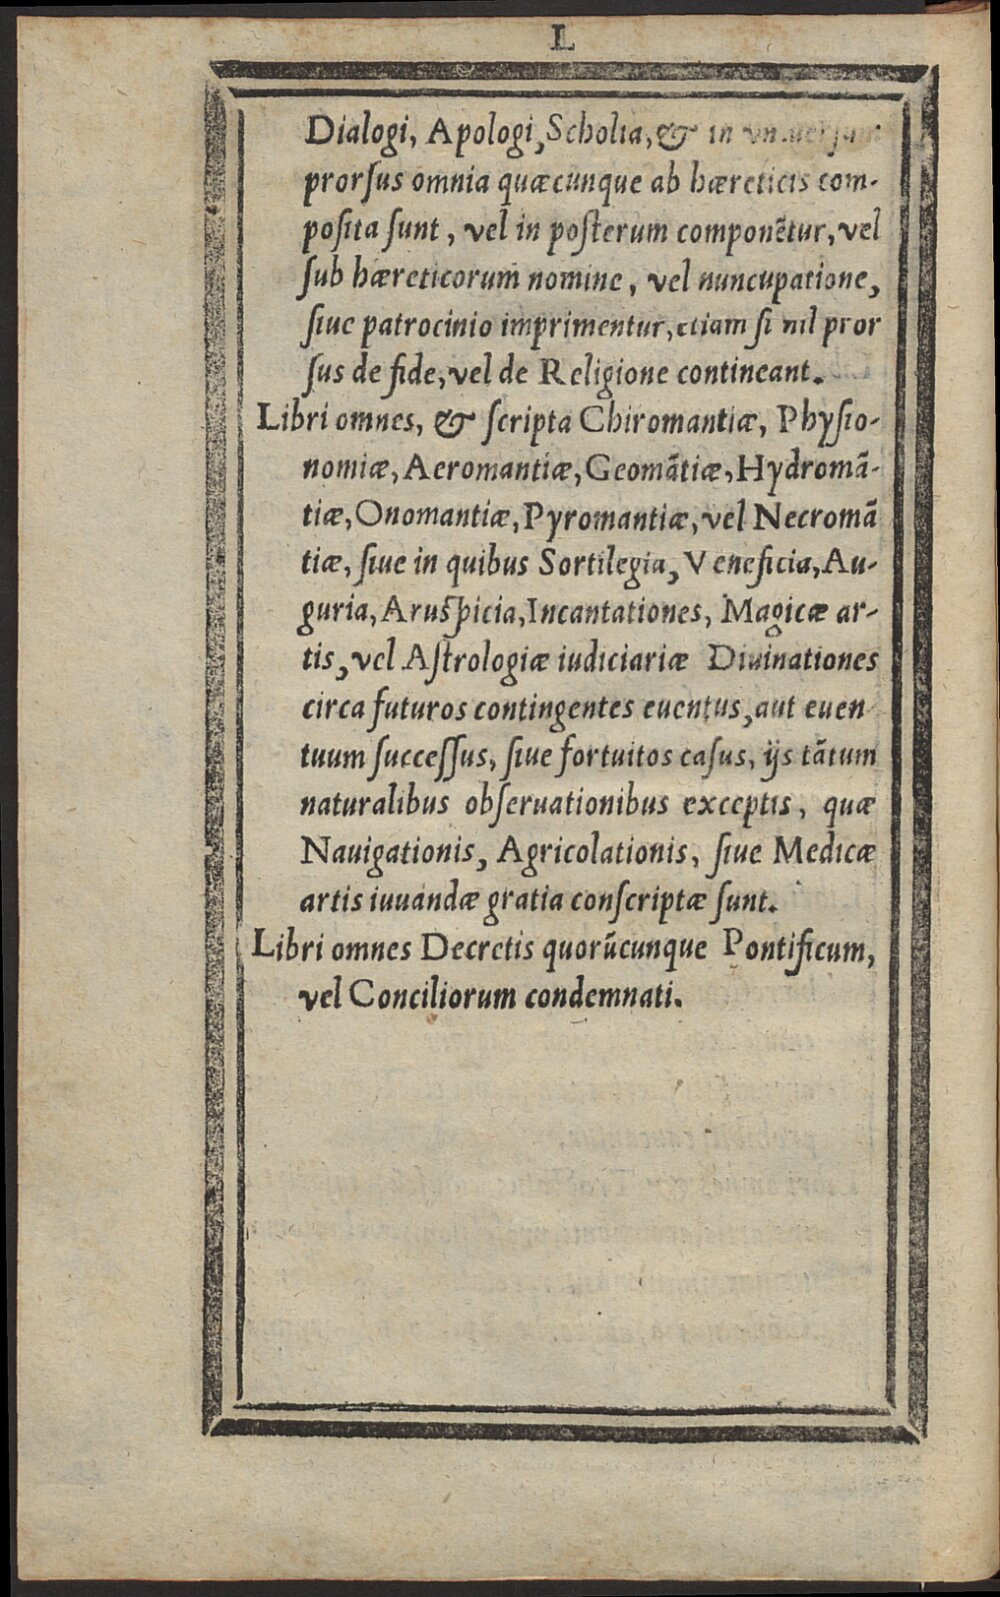 L
Dialogi, Apologi, Scholia, & in vniuersum
prorſus omnia quæcunque ab hæreticis com-
poſita ſunt, vel in poſterum componẽtur, vel
ſub hæreticorum nomine, vel nuncupatione,
ſiue patrocinio imprimentur, etiam ſi nil pror
ſus de fide, vel de Religione contineant.
Libri omnes, & ſcripta Chiromantiæ, Phyſio-
nomiæ, Aeromantiæ, Geomãtiæ, Hydromã-
tiæ, Onomantiæ, Pyromantiæ, vel Necromã
tiæ, ſiue in quibus Sortilegia, Veneficia, Au-
guria, Aruſpicia, Incantationes, Magicæ ar-
tis, vel Aſtrologiæ iudiciariæ Diuinationes
circa futuros contingentes euentus, aut euen
tuum ſucceſſus, ſiue fortuitos caſus, ijs tãtum
naturalibus obſeruationibus exceptis, quæ
Nauigationis, Agricolationis, ſiue Medicæ
artis iuuandæ gratia conſcriptæ ſunt.
Libri omnes Decretis quorũcunque Pontificum,
vel Conciliorum condemnati.